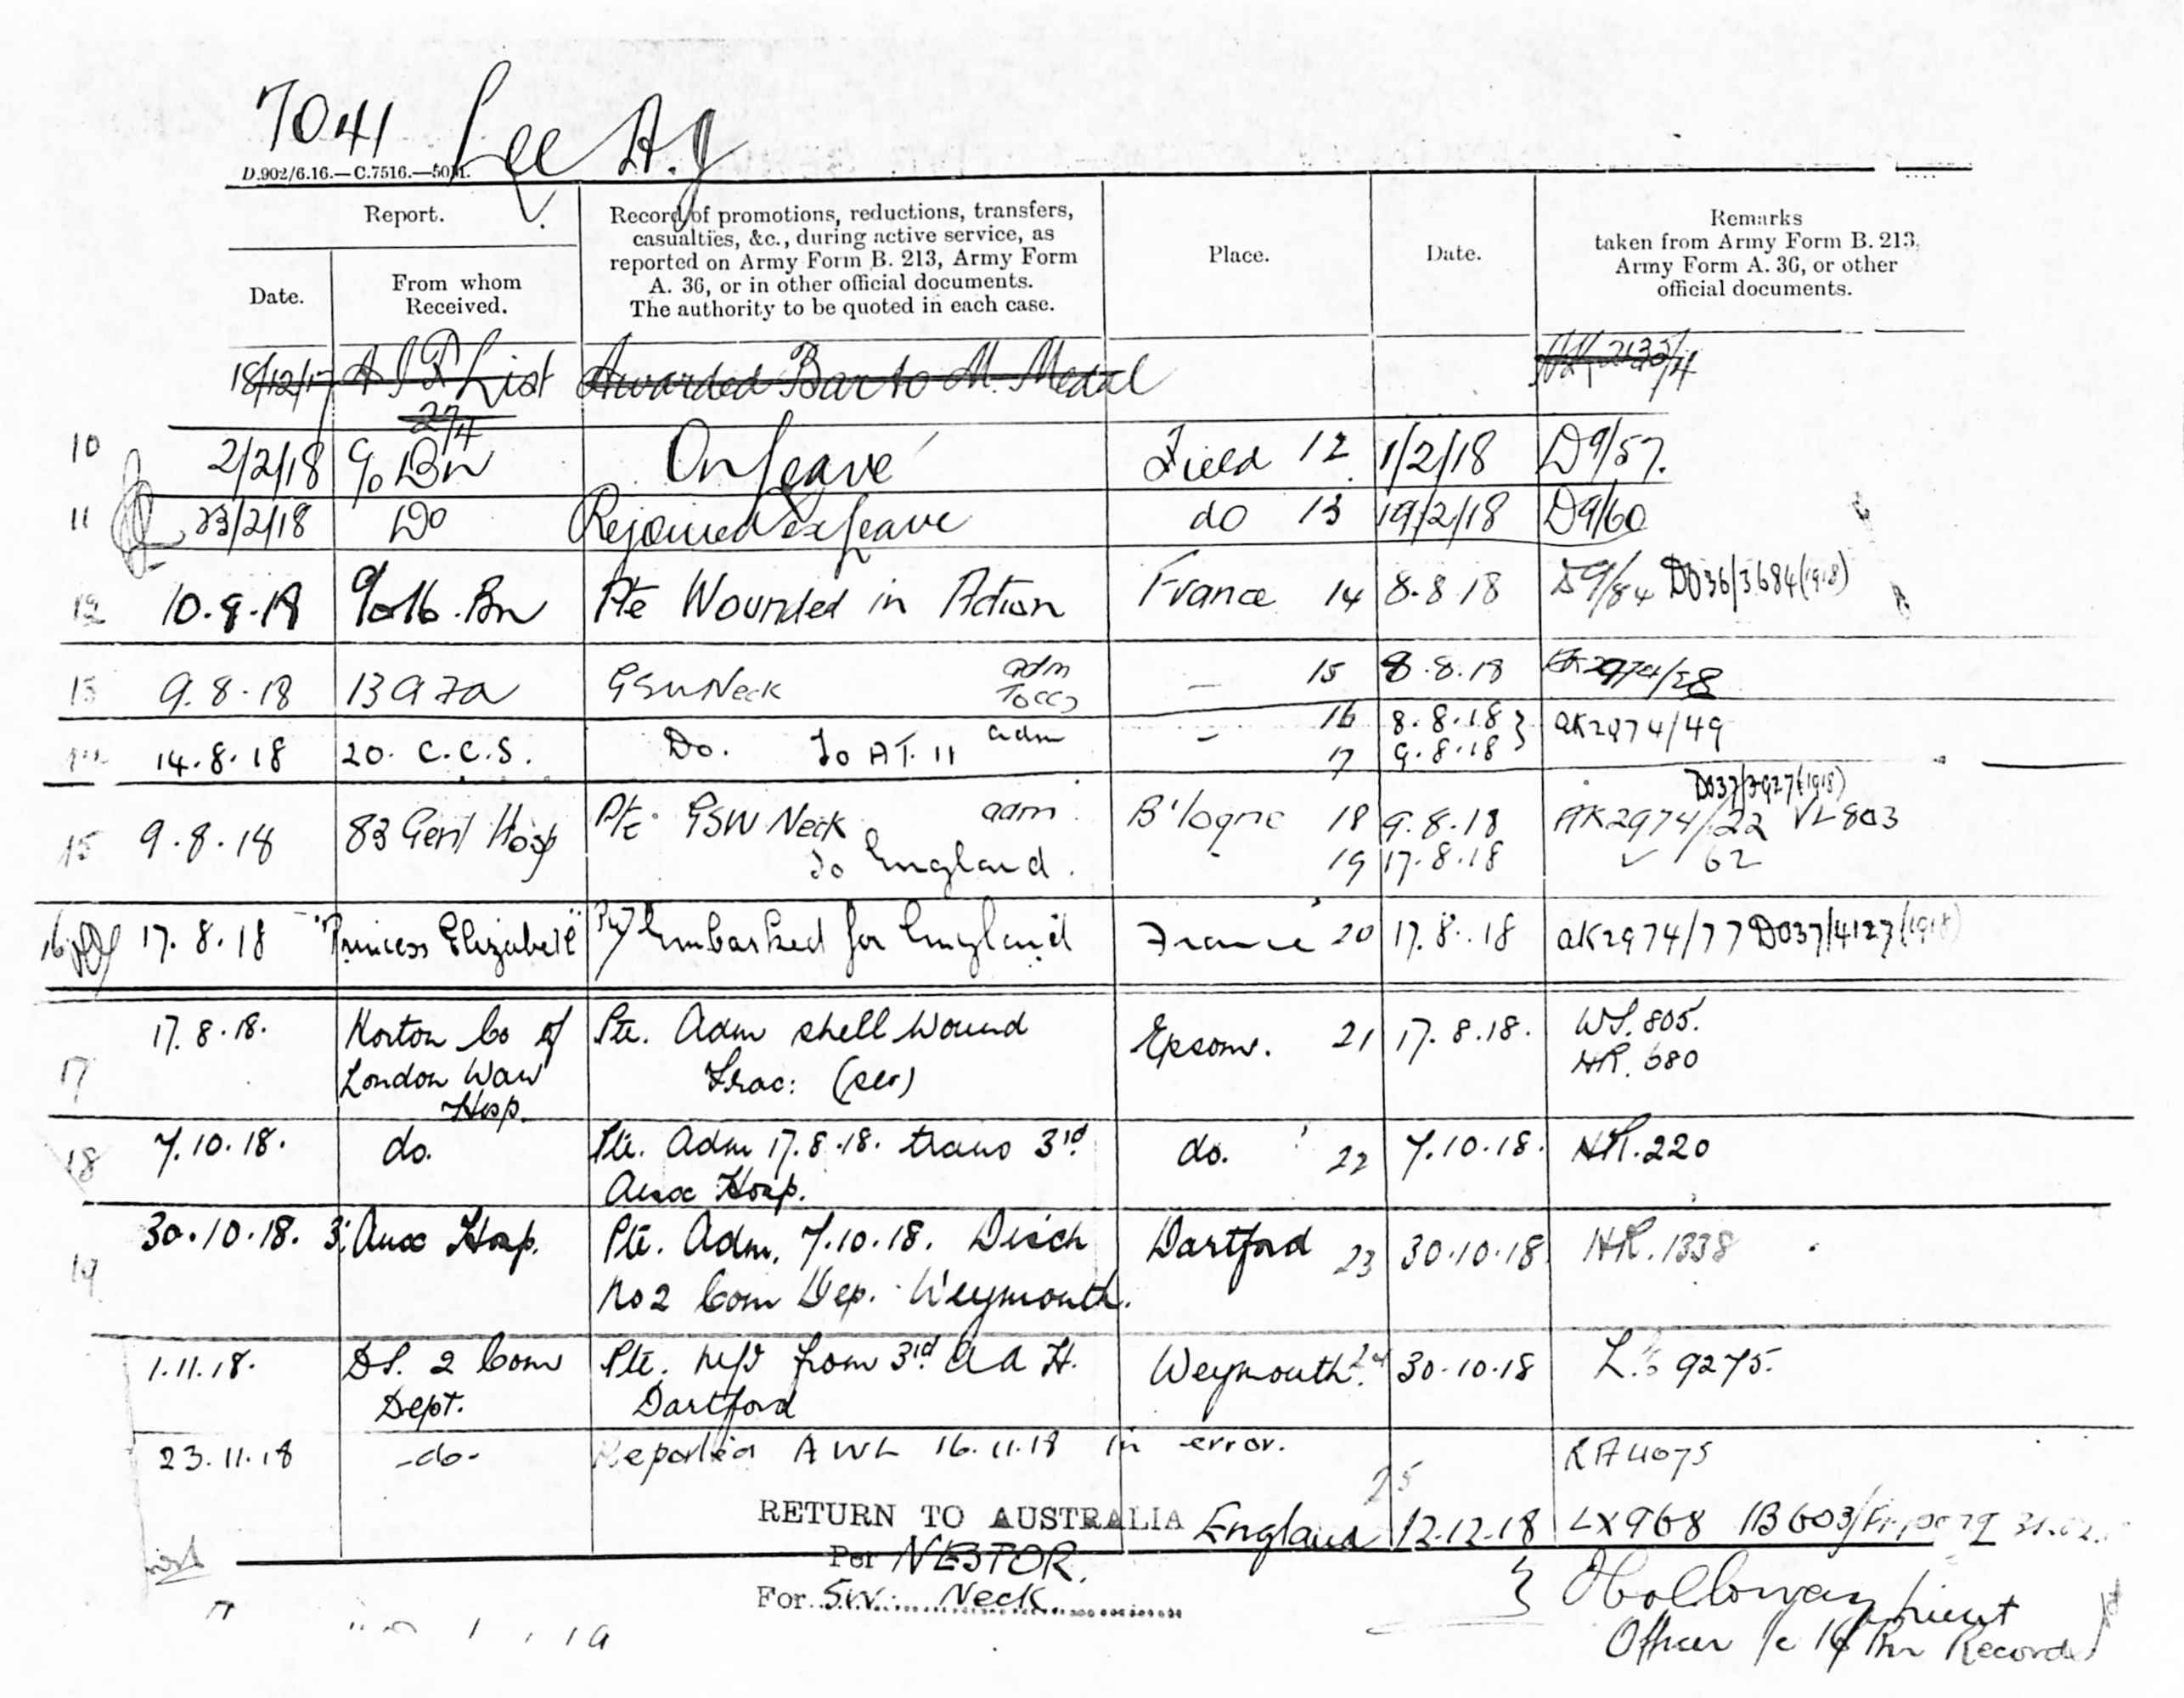 7041 Lee A.J
D.902/6.16.—C.7516.—50M.
Report.
Date.
From whom
Received.
Record of promotions, reductions, transfers,
casualties, &c., during active service, as
reported on Army Form B. 213, Army Form
A. 36, or in other official documents.
The authority to be quoted in each case.
Place.
Date.
Remarks
taken from Army Form B. 213,
Army Form A. 36, or other
official documents.
18/12/17 A I F List Awarded Bar to M. Medal
27/4
10 2/2/18 Bn On Leave Field 12 1/2/18 D9/57.
11 23/2/18 Do Rejoined ex Leave do 13 19/2/18 D9/60
12 16 Bn Pte Wounded in Action France 14 8.8.18 D9/84 D036/3684(1918)
13 9.8.18 13 a F a GSW Neck adm 15 8.8.18
To CCS
16 8.8.18 } AK2974/49
14.8.18 20. C.C.S. Do. To A.T. 11 adm 17 9.8.18
D037/3927(1918)
15 9.8.18 83 Genl Hosp Pte GSW Neck adm B'logne 18 9.8.18 AK2974/22 VL803
To England. 19 17.8.18 62
16 17.8.18 "Princess Elizabeth" Embarked for England France 20 17.8.18 AK2974/77 D037/4127(1918)
17 17.8.18. Horton Co of Pte. Adm shell Wound Epsom. 21 17.8.18. WS.805.
London War (sev) HR.680
Hosp.
18 7.10.18. do. Pte. Adm 17.8.18. trans 3rd do. 22 7.10.18. HR.220
Aux Hosp.
19 30.10.18. 3. Aux Hosp. Pte. Adm. 7.10.18. Disch Dartford 23 30.10.18. HR.1338
No 2 Com Dep. Weymouth.
1.11.18. 2 Com Pte. from 3rd A A H. Weymouth. 24 30.10.18 9275.
Dept. Dartford
23.11.18 -do- Reported AWL 16.11.18 in error.
25
RETURN TO AUSTRALIA England 12.12.18 LX968
Per NESTOR.
For S.W. Neck
Holloway Lieut
Officer i/c 16 Bn Records